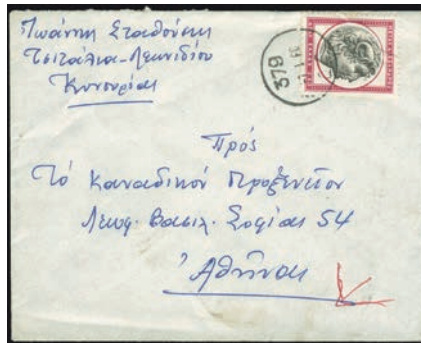 Ἰωάννης Σταθούσης
Τσιτάλια-Λεωνιδίου
Κυνουρίας
379
Πρός
Τό Καναδικόν Προξενεῖον
Λεωφ. Βασιλ. Σοφίας 54
Ἀθήνας